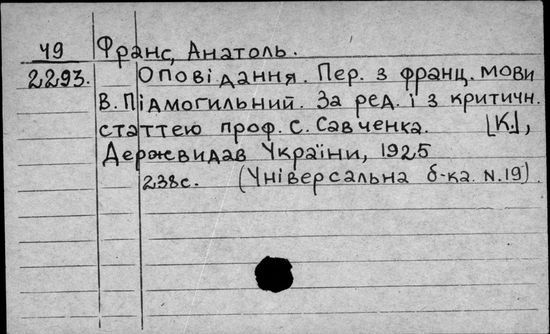 49 Франс, Анатоль.
2293. Оповідання. Пер. з франц. мови
В. Підмогильний. За ред. і з критичн.
статтею проф. С. Савченка. [К.],
Держвидав України, 1925
238с. (Універсальна б-ка. N.19).